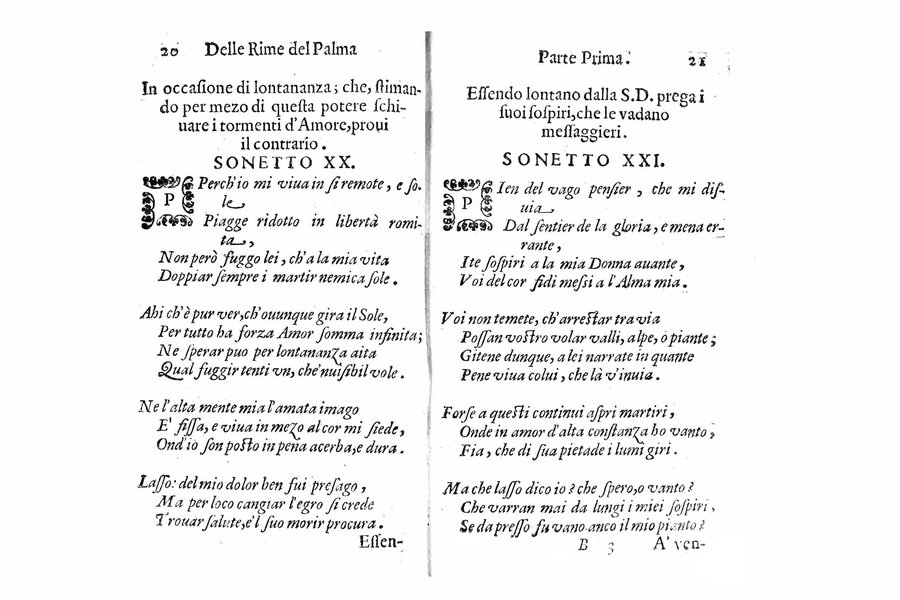 20 Delle Rime del Palma
In occaſione di lontananza; che, ſtiman-
do per mezo di queſta potere ſchi-
uare i tormenti d'Amore, proui
il contrario.
SONETTO XX.
Perch'io mi viua in ſi remote, e ſo-
le
Piagge ridotto in libertà romi-
ta,
Non però fuggo lei, ch'a la mia vita
Doppiar ſempre i martir nemica ſole.
Ahi ch'è pur ver, ch'ouunque gira il Sole,
Per tutto ha forza Amor ſomma infinita;
Ne ſperar puo per lontananza aita
Qual fuggir tenti vn, che' nuiſibil vole.
Ne l'alta mente mia l'amata imago
E' fiſſa, e viua in mezo al cor mi ſiede,
Ond'io ſon poſto in pena acerba, e dura.
Laſſo: del mio dolor ben fui preſago,
Ma per loco cangiar l'egro ſi crede
Trouar ſalute, e'l ſuo morir procura.
Eſſen-
Parte Prima. 21
Eſſendo lontano dalla S.D. prega i
ſuoi ſoſpiri, che le vadano
meſſaggieri.
SONETTO XXI.
PIen del vago penſier, che mi diſ-
uia
Dal ſentier de la gloria, e mena er-
rante,
Ite ſoſpiri a la mia Donna auante,
Voi del cor fidi meſsi a l'Alma mia.
Voi non temete, ch'arreſtar tra via
Poſſan voſtro volar valli, alpe, o piante;
Gitene dunque, a lei narrate in quante
Pene viua colui, che là v'inuia.
Forſe a queſti continui aſpri martiri,
Onde in amor d'alta conſtanza ho vanto,
Fia, che di ſua pietade i lumi giri.
Ma che laſſo dico io? che ſpero, o vanto?
Che varran mai da lungi i miei ſoſpiri,
Se da preſſo fu vano anco il mio pianto?
B 3 A' ven-